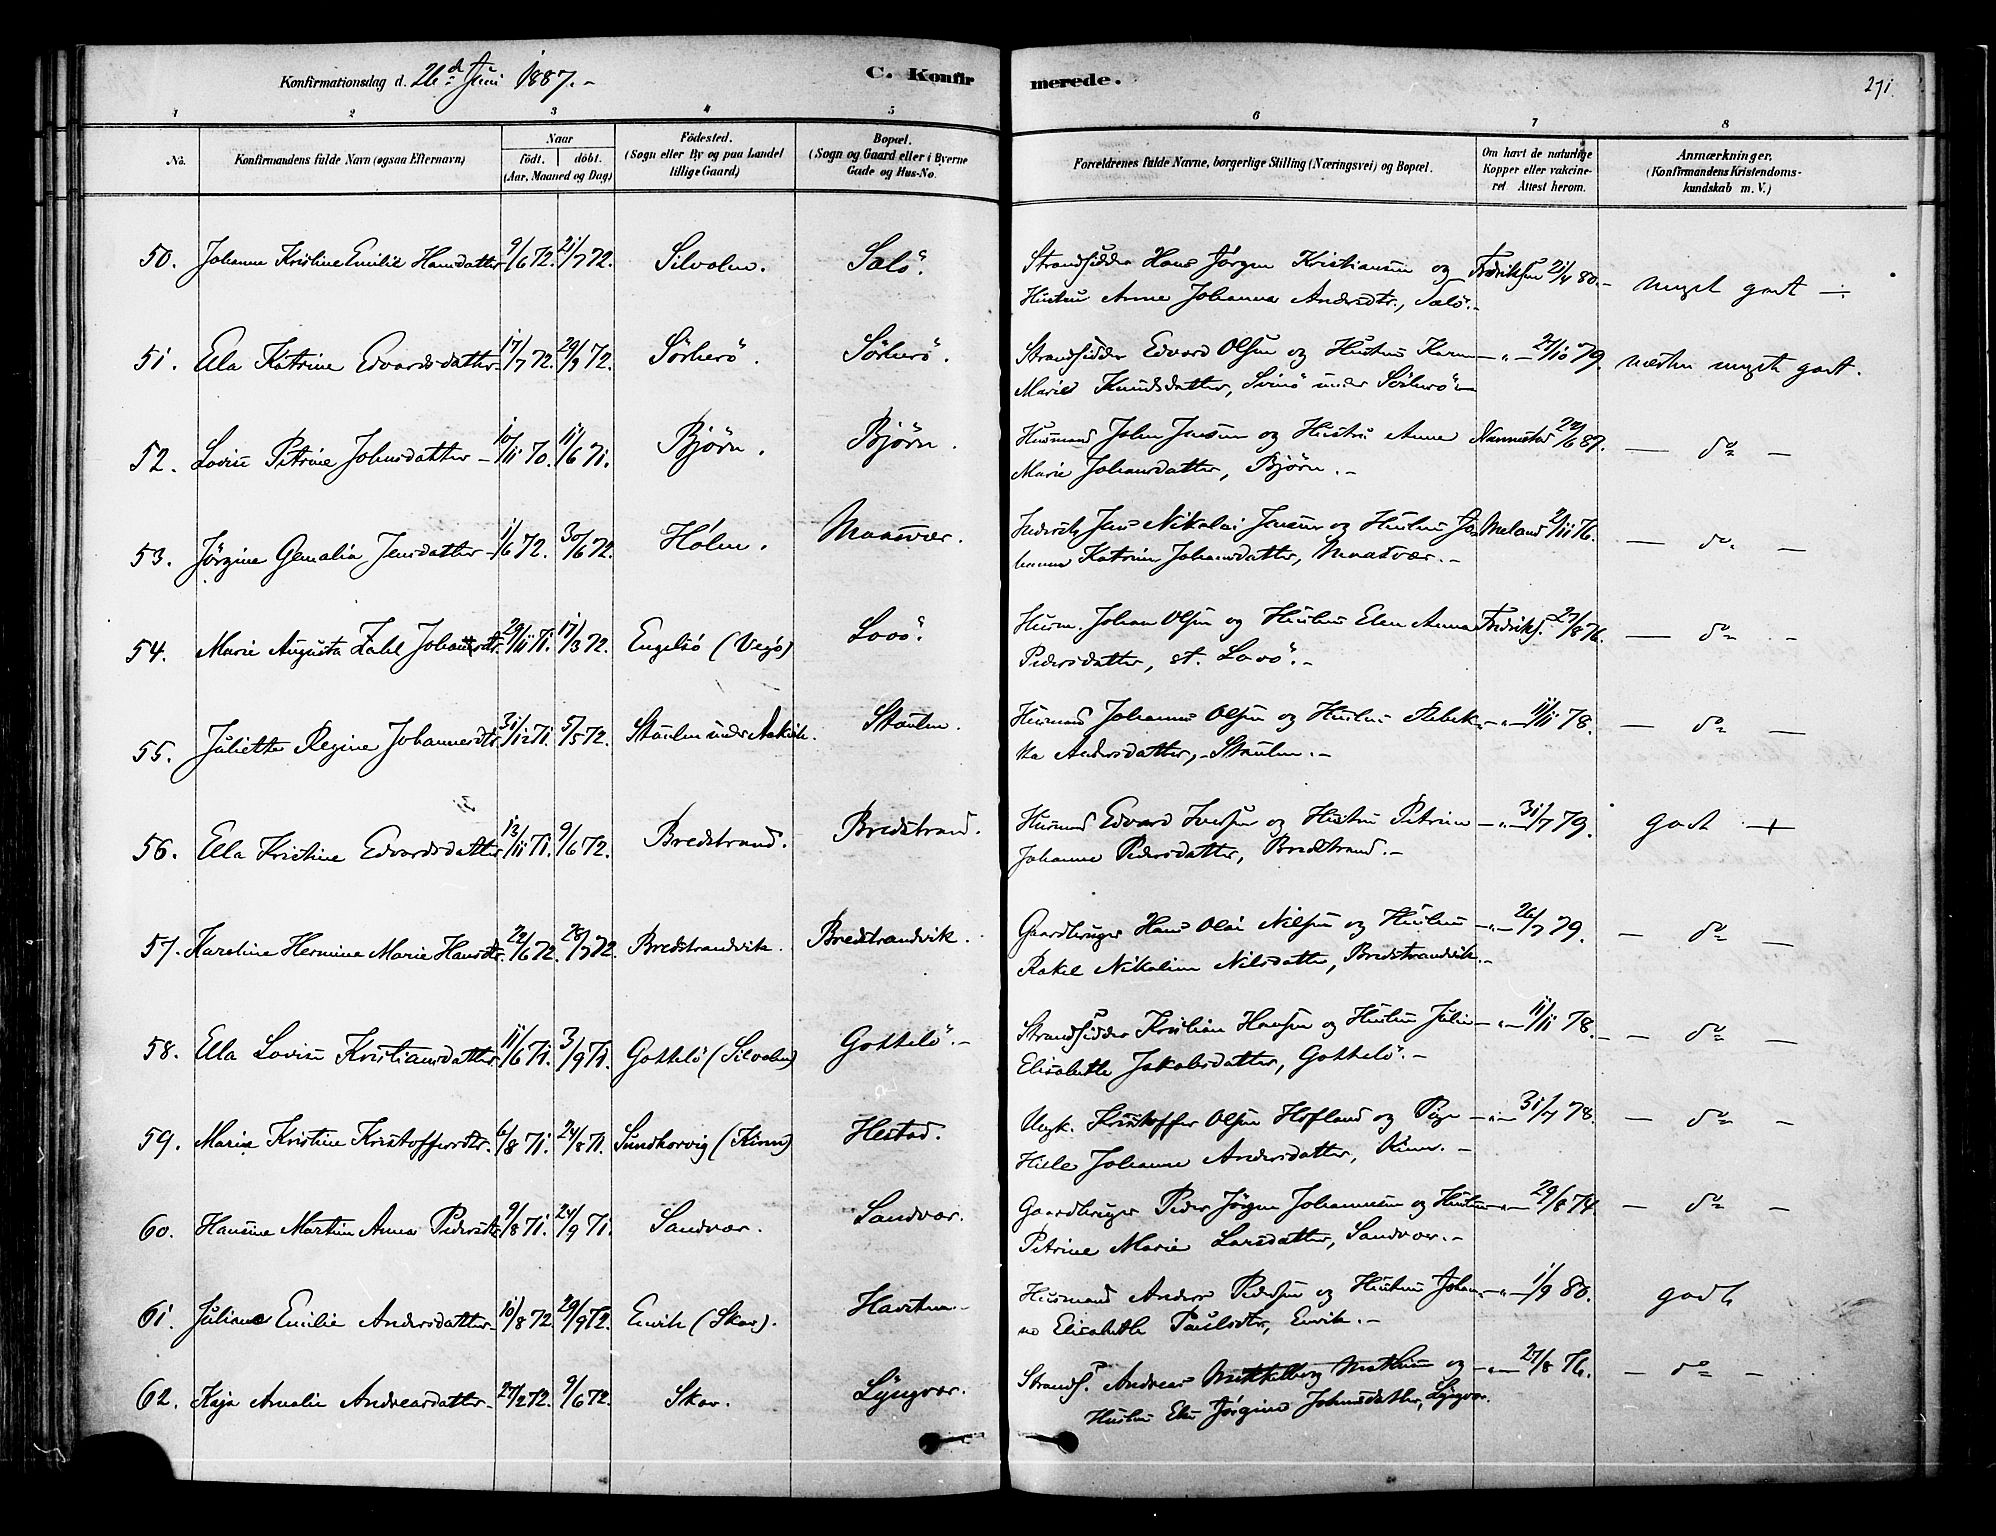 Konfirmationsdag d. 26d Juni 1887.-
C. Konfirmerede.
271.
1 2 3 4 5 6 7 8
No. Konfirmandens fulde Navn (ogsaa Efternavn) Naar født. døbt. (Aar, Maaned og Dag) Fødested. (Sogn eller By og paa Landet tillige Gaard) Bopæl. (Sogn og Gaard eller i Byerne Gade og Hus-No. Forældrenes fulde Navne, borgerlige Stilling (Næringsvei) og Bopæl. Om havt de naturlige Kopper eller vakcineret Attest herom. Anmærkninger. (Konfirmandens Kristendomskundskab m. V.)
50. Johanne Kristine Emilie Hansdatter 9/6 72. 21/7 72. Silvalen. Salö. Strandsidder Hans Jörgen Kristiansen og Fredriksen 21/4 80.- meget godt
Hustru Anne Johanna Andersdtr., Salö.-
51. Ela Katrine Edvardsdatter 17/7 72. 29/9 72. Sörherö. Sörherö. Strandsidder Edvard Olsen og Hustru Karen -"- 27/10 79. næsten meget godt.
Marie Knudsdatter, Svinö under Sörherö
52. Lovise Petrine Johnsdatter 10/11 70. 11/6 71. Bjørn. Bjørn. Husmand John Jensen og Hustru Anne Nannestad 22/6 87. — do —
Marie Johansdatter, Bjørn.-
53. Jørgine Gemalia Jensdatter 1/6 72. 30/6 72. Holm. Maasvær. Inderst Jens Nikolai Jensen og Hustru Jo- Meland 2/11 76. — do —
hanna Katrine Johansdatter, Maasvær.-
54. Marie Augusta Zahl Johansdtr. 29/11 71. 17/3 72. Engelsö (Vegö) Lovö. Husm. Johan Olsen og Hustru Elen Anna Fredriks. 27/8 76. — do —
Pedersdatter, st. Lovö.-
55. Juliette Regine Johannesdtr. 31/12 71. 5/5 72. Staulen under Aakvik. Staulen. Husmand Johannes Olsen og Hustru Rebek- -"- 11/11 78. — do —
ka Andersdatter, Staulen.-
56. Ela Kristine Edvardsdatter 13/11 71. 9/6 72. Bredstrand. Bredstrand. Husmand Edvard Iversen og Hustru Petrine -"- 31/7 79. godt +
Johanne Pedersdatter, Bredstrand.-
57. Karoline Hermine Marie Hansdtr. 22/6 72. 28/7 72. Bredstrandvik. Bredstrandvik. Gaardbruger Hans Olai Nilsen og Hustru -"- 26/7 79. — do —
Rakel Nikoline Nilsdatter, Bredstrandvik.-
58. Ella Lovise Kristiansdatter 11/6 71. 3/9 71. Gottelö (Silvalen) Gottelö.- Strandsidder Kristian Hansen og Hustru Julie -"- 11/11 78. — do —
Elisabeth Jakobsdatter, Gottelö.-
59. Marie Kristine Kristoffersdtr. 6/8 71. 24/8 71. Sundkorvig (Kinn) Hestad. Ungk. Kristoffer Olsen Hofland og Pige -"- 31/7 78. — do —
Hille Johanne Andersdatter, Kinn.-
60. Hansine Martine Anna Pedersdtr. 9/8 71. 24/9 71. Sandvær. Sandvær. Gaardbruger Peder Jörgen Johannesen og Hustru -"- 29/8 74. — do —
Petrine Marie Larsdatter, Sandvær.-
61. Juliane Emilie Andersdatter 10/8 72. 29/9 72. Envik (Skar). Havstuen Husmand Anders Pedersen og Hustru Johan- -"- 1/9 80. godt
na Elisabeth Paulsdtr, Envik.-
62. Kaja Amalie Andreasdatter 27/2 72. 9/6 72. Skar. Lyngvær. Strands. Andreas Mikkelborg Mathisen og -"- 27/8 76. — do —
Hustru Elen Jörgine Johnsdatter, Lyngvær.